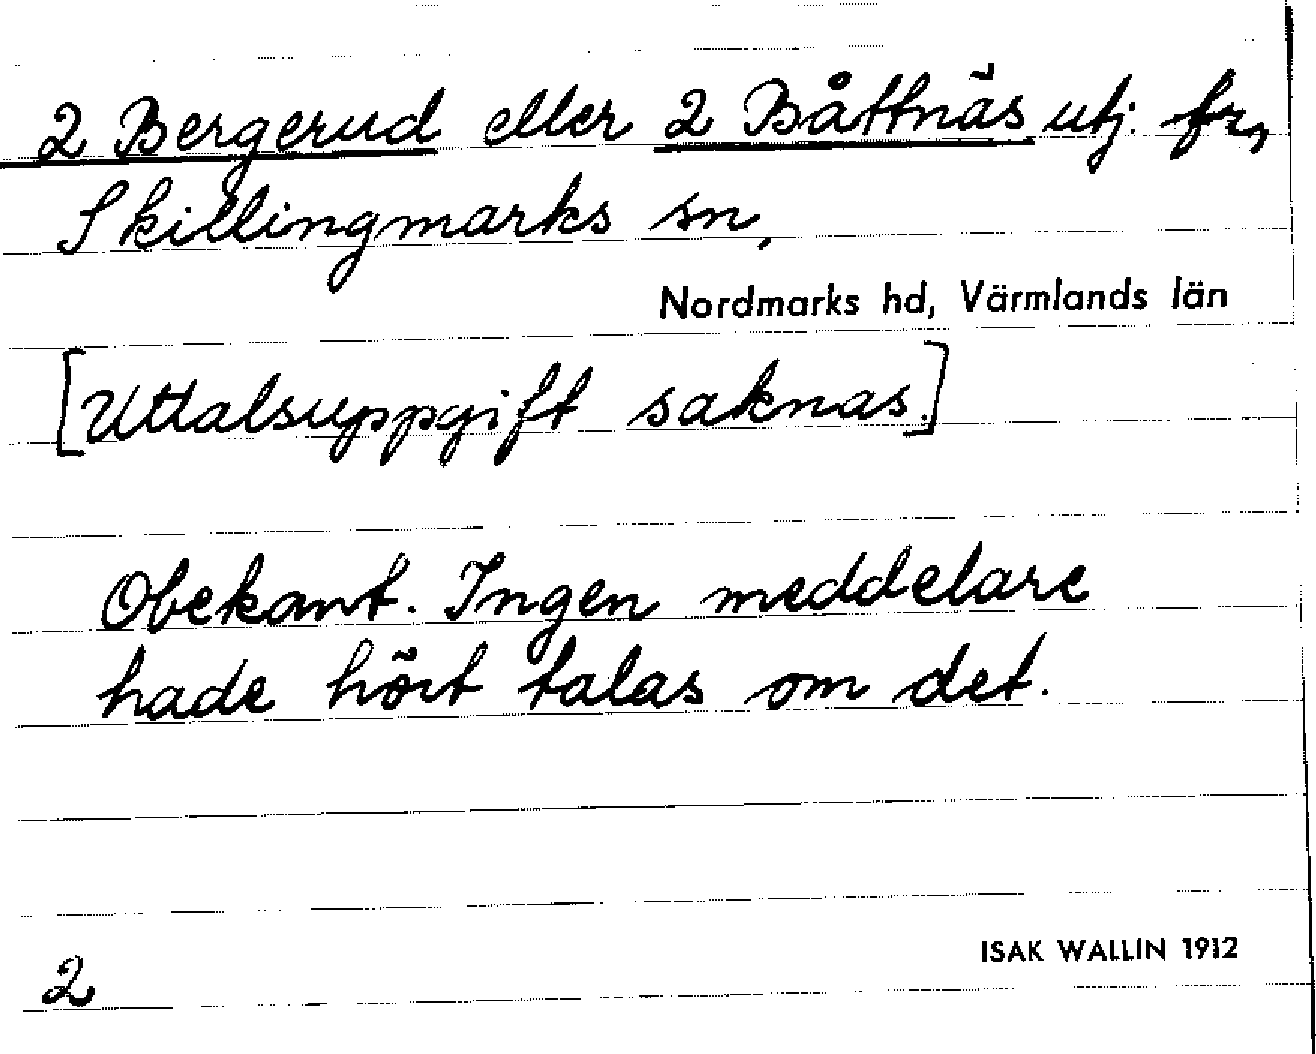 2 Bergerud eller 2 Båttnäs utj. fr,
Skillingmarks sn,
Nordmarks hd, Värmlands län
[Uttalsuppgift saknas.]
Obekant. Ingen meddelare
hade hört talas om det.
ISAK WALLIN 1912
2